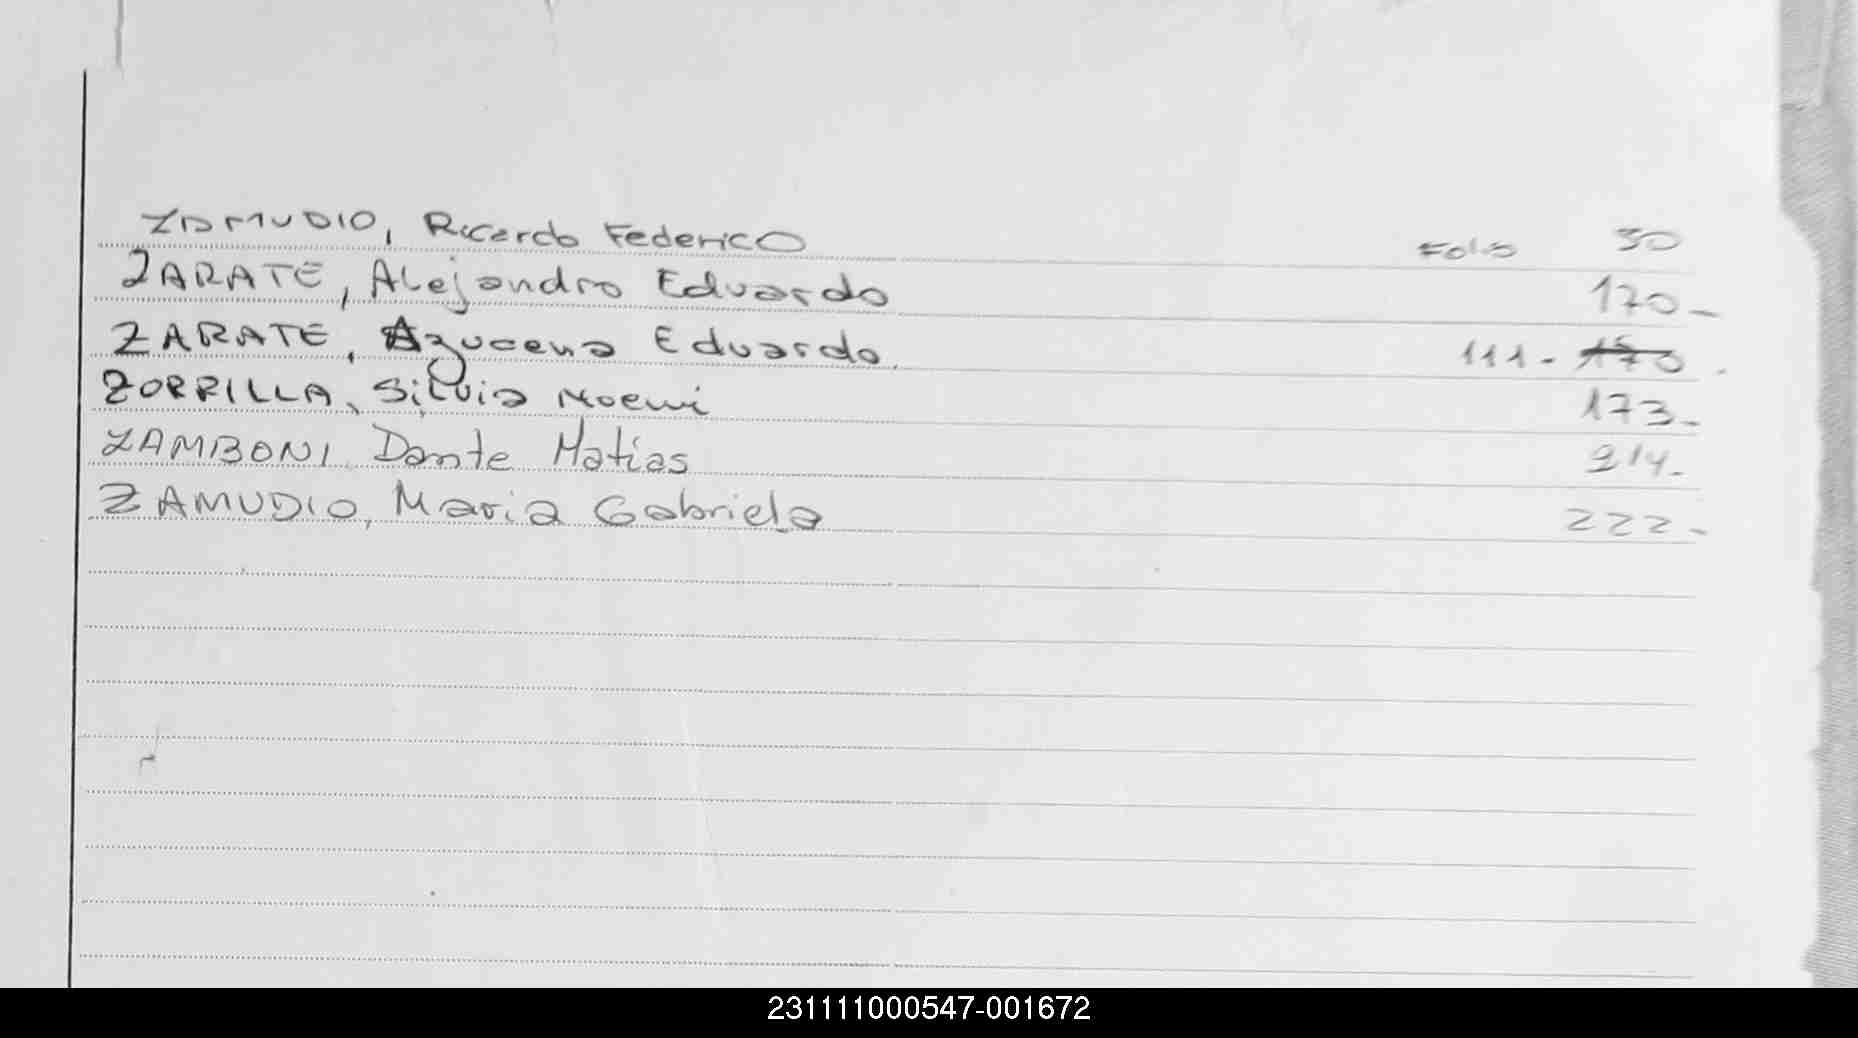 ZAMUDIO, Ricardo Federico Folio 30
ZARATE, Alejandro Eduardo 170-
ZARATE, Azucena Eduardo. 111-
ZORRILLA, Silvia Noemi 173-
ZAMBONI, Dante Matias 214-
ZAMUDIO, Maria Gabriela 222-
231111000547-001672